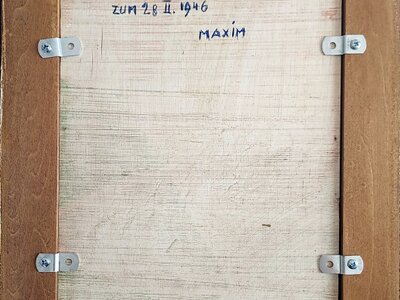 ZUM 28 II. 1946
MAXIM